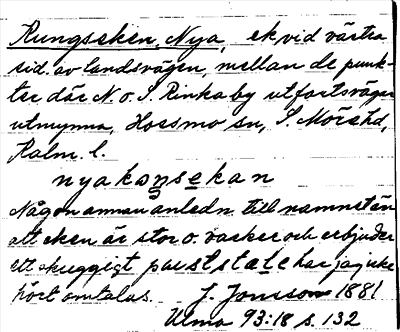 Kungseken, Nya, ek vid västra
sid. av landsvägen, mellan de punk-
ter där N. o. S. Rinkaby utfartsvägar
utmynna, Hossmo sn, S. Möre hd,
Kalm. l.
nyakoŋsekan
Någon annan anledn. till namnet än
att eken är stor o. vacker och erbjuder
ett skuggigt paustställe har jag icke
hört omtalas. J. Jonsson 1881
Ulma 93:18 s. 132